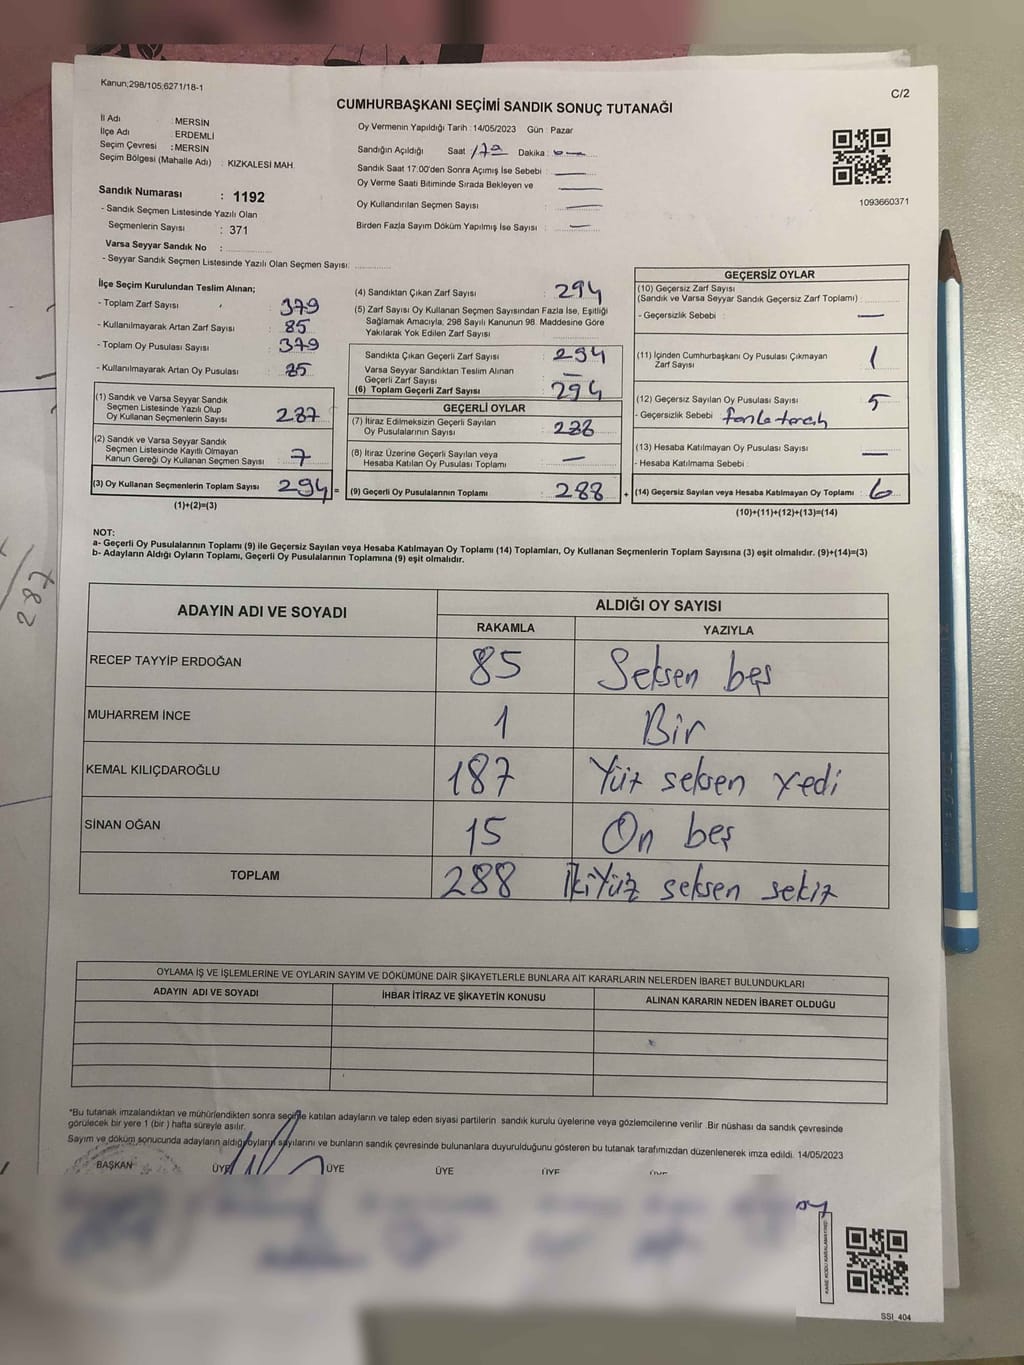 Kanun;298/105,6271/18-1
C/2
CUMHURBAŞKANI SEÇİMİ SANDIK SONUÇ TUTANAĞI
İl Adı : MERSİN
İlçe Adı : ERDEMLİ
Seçim Çevresi : MERSİN
Seçim Bölgesi (Mahalle Adı) : KIZKALESİ MAH.
Oy Vermenin Yapıldığı Tarih : 14/05/2023 Gün : Pazar
Sandığın Açıldığı Saat Dakika :
Sandık Saat 17:00'den Sonra Açılmış İse Sebebi :
Oy Verme Saati Bitiminde Sırada Bekleyen ve
Oy Kullandırılan Seçmen Sayısı :
Birden Fazla Sayım Döküm Yapılmış İse Sayısı :
1093660371
Sandık Numarası : 1192
- Sandık Seçmen Listesinde Yazılı Olan
Seçmenlerin Sayısı : 371
Varsa Seyyar Sandık No :
- Seyyar Sandık Seçmen Listesinde Yazılı Olan Seçmen Sayısı:
İlçe Seçim Kurulundan Teslim Alınan;
- Toplam Zarf Sayısı : 379
- Kullanılmayarak Artan Zarf Sayısı : 85
- Toplam Oy Pusulası Sayısı : 379
- Kullanılmayarak Artan Oy Pusulası : 85
(1) Sandık ve Varsa Seyyar Sandık
Seçmen Listesinde Yazılı Olup
Oy Kullanan Seçmenlerin Sayısı : 287
(2) Sandık ve Varsa Seyyar Sandık
Seçmen Listesinde Kayılı Olmayan
Kanun Gereği Oy Kullanan Seçmen Sayısı : 7
(3) Oy Kullanan Seçmenlerin Toplam Sayısı : 294 =
(1)+(2)=(3)
(4) Sandıktan Çıkan Zarf Sayısı : 294
(5) Zarf Sayısı Oy Kullanan Seçmen Sayısından Fazla İse, Eşitliği
Sağlamak Amacıyla, 298 Sayılı Kanunun 98. Maddesine Göre
Yakılarak Yok Edilen Zarf Sayısı
Sandıkta Çıkan Geçerli Zarf Sayısı : 294
Varsa Seyyar Sandıktan Teslim Alınan
Geçerli Zarf Sayısı : —
(6) Toplam Geçerli Zarf Sayısı : 294
GEÇERLİ OYLAR
(7) İtiraz Edilmeksizin Geçerli Sayılan
Oy Pusulalarının Sayısı : 288
(8) İtiraz Üzerine Geçerli Sayılan veya
Hesaba Katılan Oy Pusulası Toplamı : —
(9) Geçerli Oy Pusulalarının Toplamı : 288 +
GEÇERSİZ OYLAR
(10) Geçersiz Zarf Sayısı
(Sandık ve Varsa Seyyar Sandık Geçersiz Zarf Toplamı) :
- Geçersizlik Sebebi : —
(11) İçinden Cumhurbaşkanı Oy Pusulası Çıkmayan
Zarf Sayısı : 1
(12) Geçersiz Sayılan Oy Pusulası Sayısı : 5
- Geçersizlik Sebebi :
(13) Hesaba Katılmayan Oy Pusulası Sayısı : —
- Hesaba Katılmama Sebebi :
(14) Geçersiz Sayılan veya Hesaba Katılmayan Oy Toplamı : 6
(10)+(11)+(12)+(13)=(14)
NOT:
a- Geçerli Oy Pusulalarının Toplamı (9) ile Geçersiz Sayılan veya Hesaba Katılmayan Oy Toplamı (14) Toplamları, Oy Kullanan Seçmenlerin Toplam Sayısına (3) eşit olmalıdır. (9)+(14)=(3)
b- Adayların Aldığı Oyların Toplamı, Geçerli Oy Pusulalarının Toplamına (9) eşit olmalıdır.
287
ADAYIN ADI VE SOYADI
ALDIĞI OY SAYISI
RAKAMLA YAZIYLA
RECEP TAYYİP ERDOĞAN 85 Seksen beş
MUHARREM İNCE 1 Bir
KEMAL KILIÇDAROĞLU 187 Yüz seksen yedi
SİNAN OĞAN 15 On beş
TOPLAM 288 İkiyüz seksen sekiz
OYLAMA İŞ VE İŞLEMLERİNE VE OYLARIN SAYIM VE DÖKÜMÜNE DAİR ŞİKAYETLERLE BUNLARA AİT KARARLARIN NELERDEN İBARET BULUNDUKLARI
ADAYIN ADI VE SOYADI İHBAR İTİRAZ VE ŞİKAYETİN KONUSU ALINAN KARARIN NEDEN İBARET OLDUĞU
*Bu tutanak imzalandıktan ve mühürlendikten sonra seçime katılan adayların ve talep eden siyasi partilerin sandık kurulu üyelerine veya gözlemcilerine verilir .Bir nüshası da sandık çevresinde
görülecek bir yere 1 (bir ) hafta süreyle asılır.
Sayım ve döküm sonucunda adayların aldığı oyların sayılarını ve bunların sandık çevresinde bulunanlara duyurulduğunu gösteren bu tutanak tarafımızdan düzenlenerek imza edildi. 14/05/2023
BAŞKAN ÜYE ÜYE ÜYE ÜYE ÜYE
SSI_404